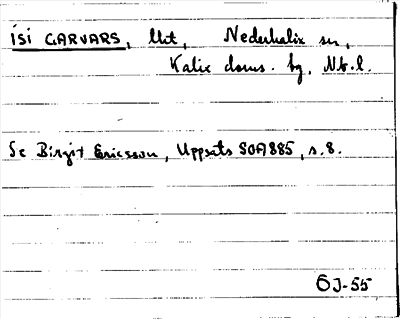 ISI GARVARS, Utt, Nederkalix sn,
Kalix doms. bg, Nb. l.
Se Birgit Ericsson, Uppsats SOA 885, s. 8.
ÖJ-55